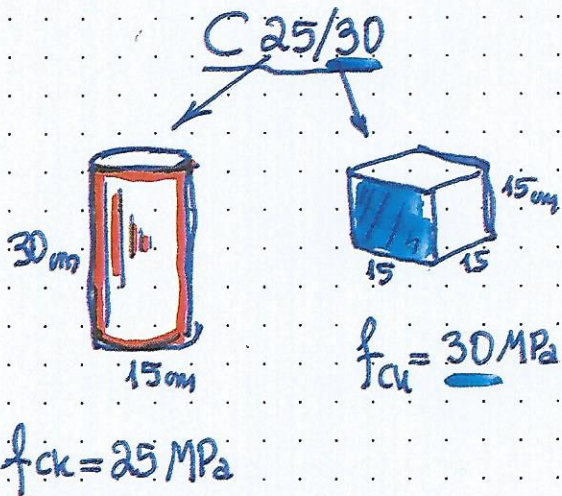 C 25/30
30cm
15cm
15cm
15
15
fcu = 30 MPa
fck = 25 MPa